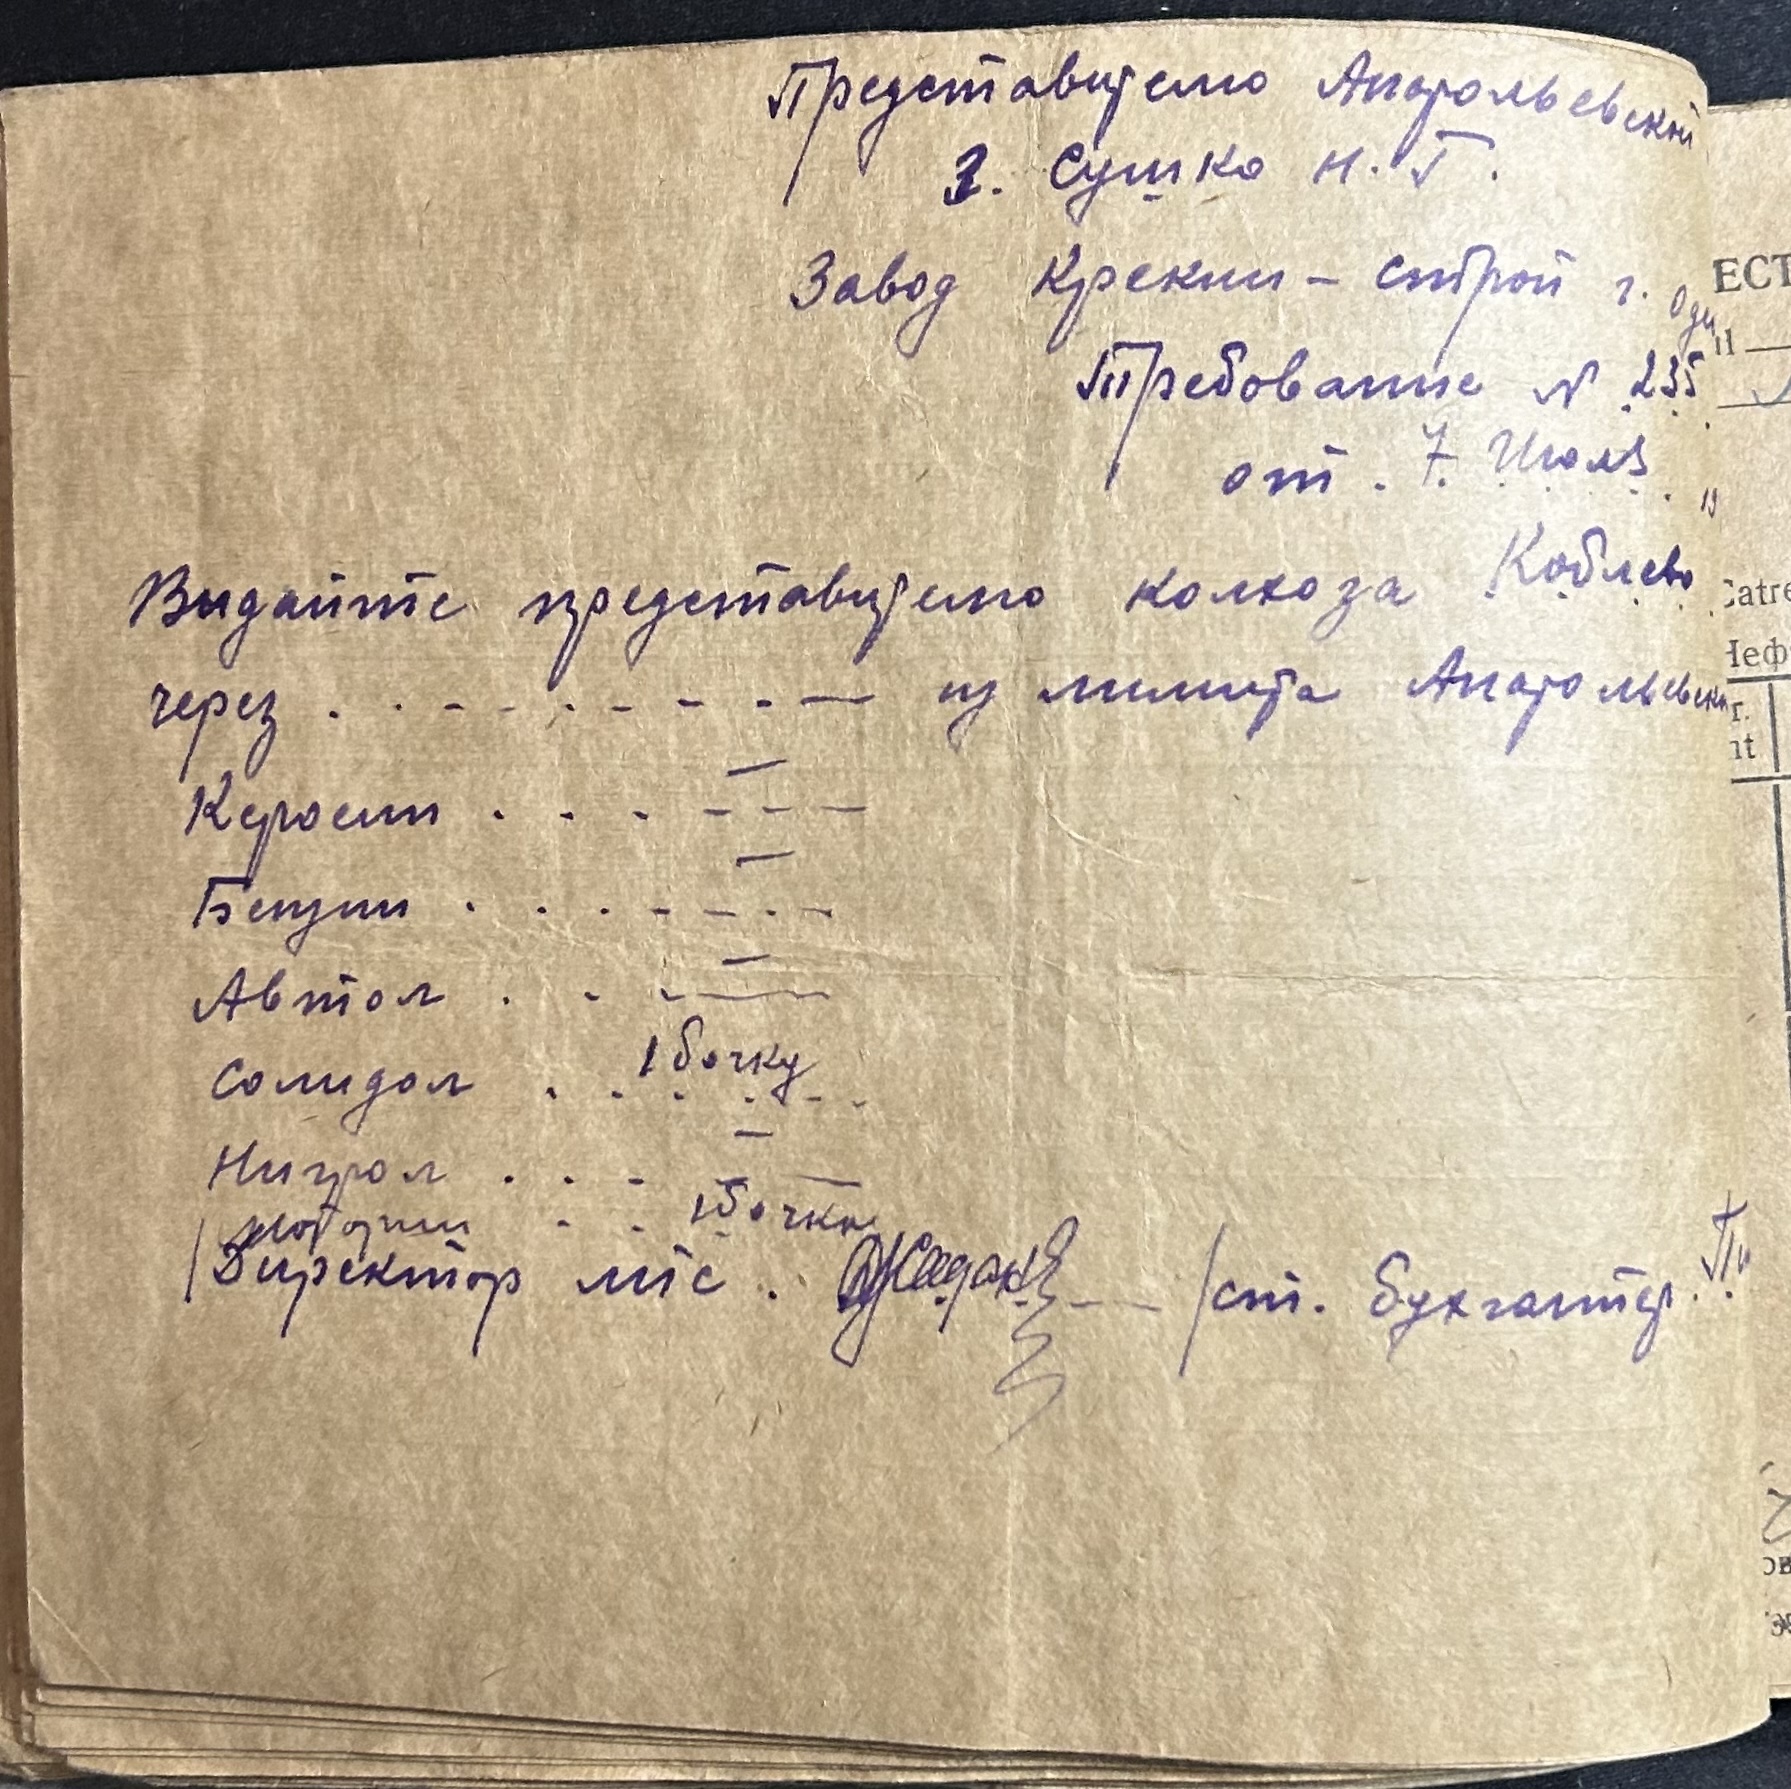 Представителю Анатольевской
З. Сушко Н. Г.
Завод Крекин - строй г. Оде
Требование N 235
от . 7. Июля . 19
Видайте представителю колхоза Коблево
через . . - - - - - - - из лимита Анатольевск
Керосин . . . - - - —
Бензин . . . - - . -
Автол . . - —
Солидол . . 1 бочку
Нигрол . . . - —
моторин - - 1 бочка
/ Директор мтс . / ст. бухгалтер.
ЕСТ
Неф